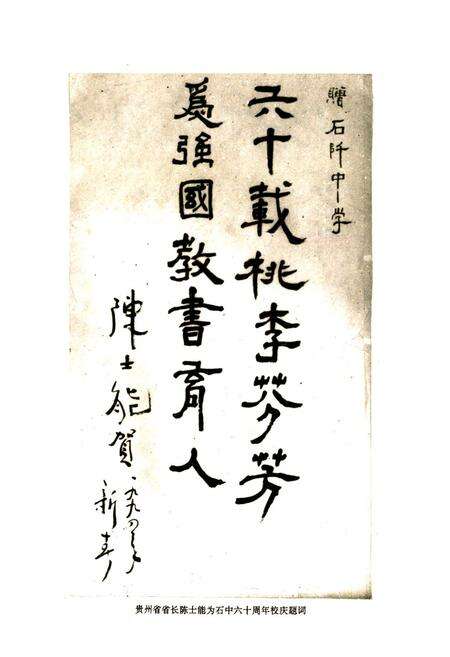 赠石阡中学
六十载桃李芬芳
爲强國教書育人
陳士能賀
一九九四年
新春
贵州省省长陈士能为石中六十周年校庆题词